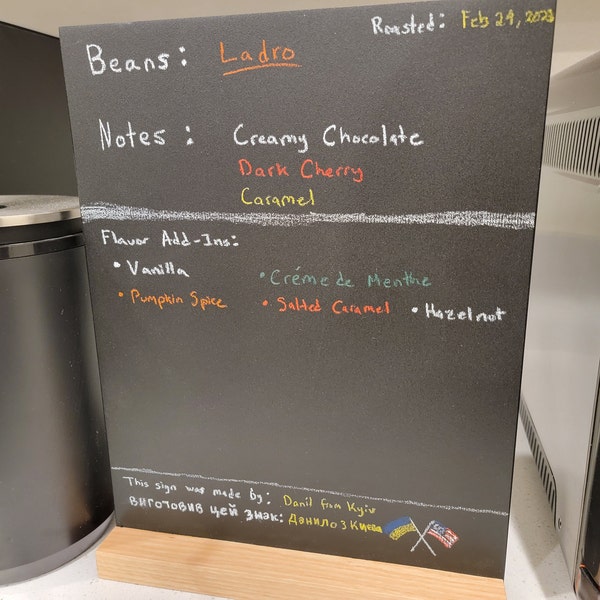 Roasted: Feb 24, 2023
Beans: Ladro
Notes: Creamy Chocolate
Dark Cherry
Caramel
Flavor Add-Ins:
• Vanilla • Créme de Menthe
• Pumpkin Spice • Salted Caramel • Hazelnut
This sign was made by: Danil from Kyiv
Виготовив цей знак: Данило з Києва